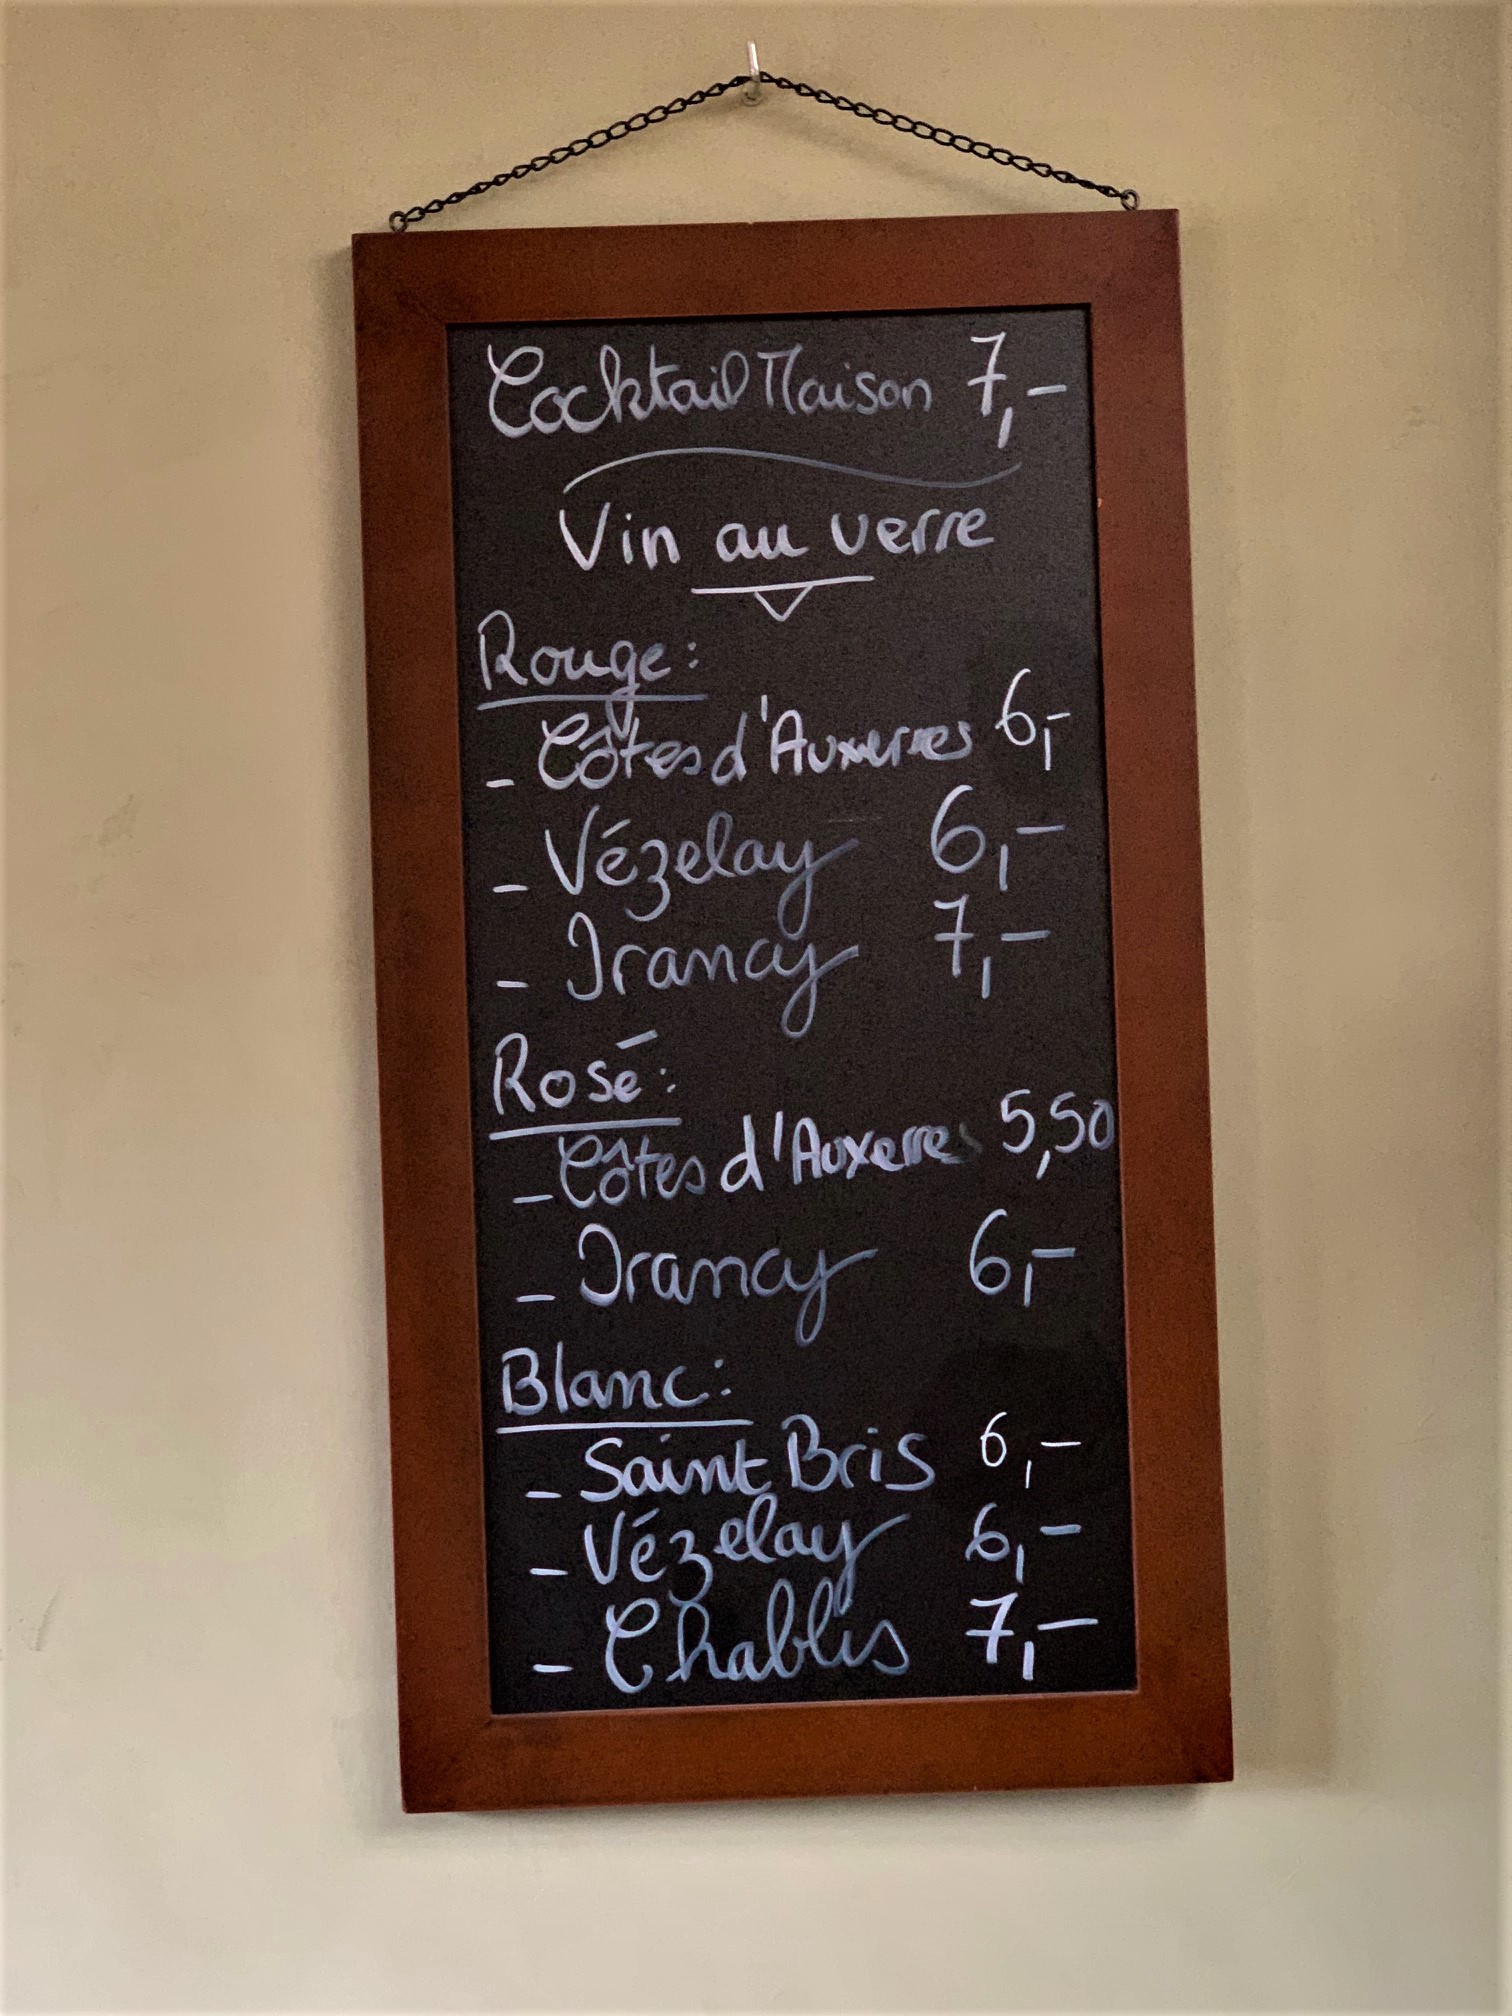 Cocktail Maison 7,-
Vin au verre
Rouge:
- Côtes d'Auxerres 6,-
- Vézelay 6,-
- Irancy 7,-
Rosé:
- Côtes d'Auxerres 5,50
- Irancy 6,-
Blanc:
- Saint Bris 6,-
- Vézelay 6,-
- Chablis 7,-